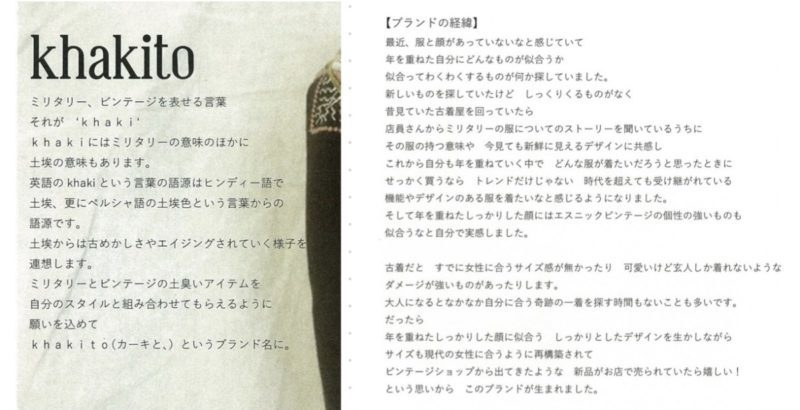 khakito
ミリタリー、ビンテージを表せる言葉
それが 'khaki'
khakiにはミリタリーの意味のほかに
土埃の意味もあります。
英語のkhakiという言葉の語源はヒンディー語で
土埃、更にペルシャ語の土埃色という言葉からの
語源です。
土埃からは古めかしさやエイジングされていく様子を
連想します。
ミリタリーとビンテージの土臭いアイテムを
自分のスタイルと組み合わせてもらえるように
願いを込めて
khakito(カーキと、)というブランド名に。
【ブランドの経緯】
最近、服と顔があっていないなと感じていて
年を重ねた自分にどんなものが似合うか
似合ってわくわくするものが何か探していました。
新しいものを探していたけど しっくりくるものがなく
昔見ていた古着屋を回っていたら
店員さんからミリタリーの服についてのストーリーを聞いているうちに
その服の持つ意味や 今見ても新鮮に見えるデザインに共感し
これから自分も年を重ねていく中で どんな服が着たいだろうと思ったときに
せっかく買うなら トレンドだけじゃない 時代を超えても受け継がれている
機能やデザインのある服を着たいなと感じるようになりました。
そして年を重ねたしっかりした顔にはエスニックビンテージの個性の強いものも
似合うなと自分で実感しました。
古着だと すでに女性に合うサイズ感が無かったり 可愛いけど玄人しか着れないような
ダメージが強いものがあったりします。
大人になるとなかなか自分に合う奇跡の一着を探す時間もないことも多いです。
だったら
年を重ねたしっかりした顔に似合う しっかりとしたデザインを生かしながら
サイズも現代の女性に合うように再構築されて
ビンテージショップから出てきたような 新品がお店で売られていたら嬉しい！
という思いから このブランドが生まれました。